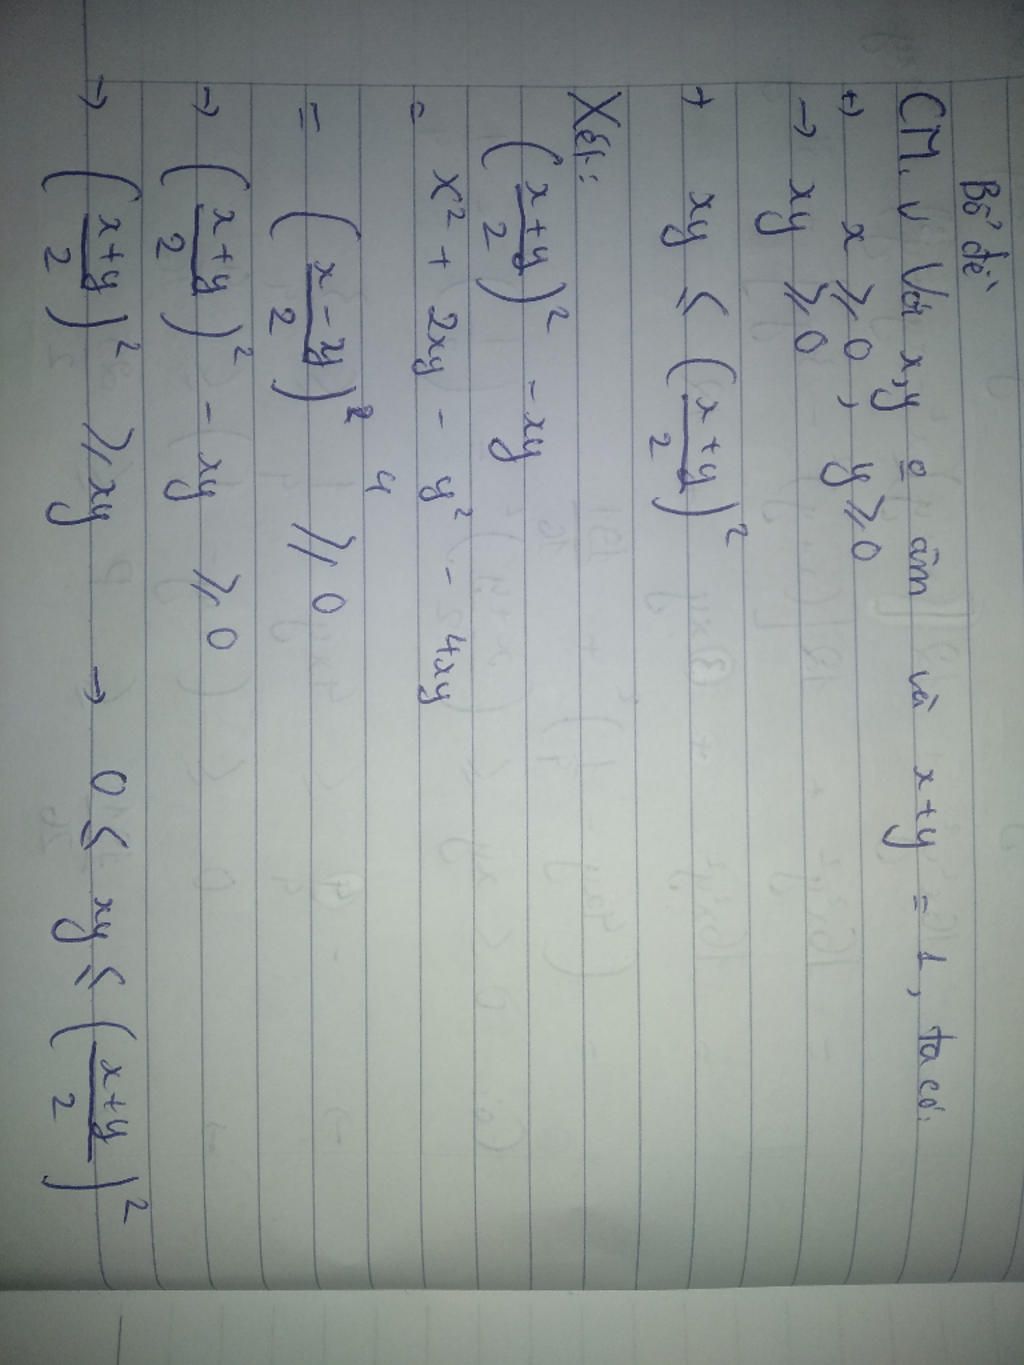 Bổ đề
CM. ∀ Với x, y o âm và x+y = 1, ta có:
↔ x ≥ 0, y ≥ 0
→ xy ≥ 0
+ xy ≤ (x+y/2)²
Xét:
(x+y/2)² - xy
= x² + 2xy - y² - 4xy
4
= (x-y/2)² ≥ 0
→ (x+y/2)² - xy ≥ 0
→ (x+y/2)² ≥ xy → 0 ≤ xy ≤ (x+y/2)²